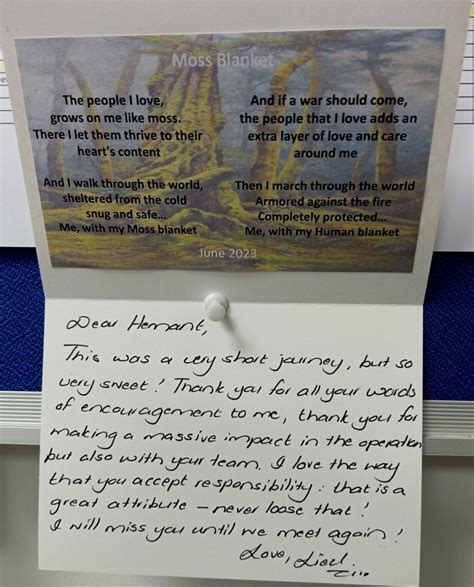 Moss Blanket
The people I love,
grows on me like moss.
There I let them thrive to their
heart's content
And I walk through the world,
sheltered from the cold
snug and safe...
Me, with my Moss blanket
And if a war should come,
the people that I love adds an
extra layer of love and care
around me
Then I march through the world
Armored against the fire
Completely protected...
Me, with my Human blanket
June 2023
Dear Hemant,
This was a very short journey, but so
very sweet! Thank you for all your words
of encouragement to me, thank you for
making a massive impact in the operation
but also with your team. I love the way
that you accept responsibility: that is a
great attribute – never loose that!
I will miss you until we meet again!
Love,